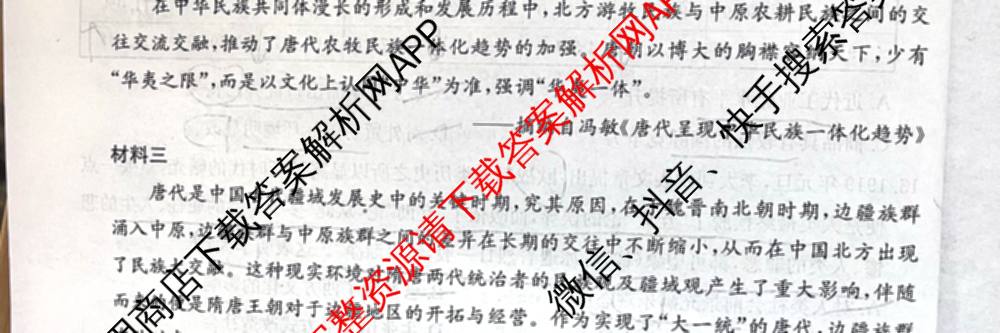 在中华民族共同体漫长的形成和发展历程中,北方游牧民族与中原农耕民族之间的交
往交流交融,推动了唐代农牧民族一体化趋势的加强。唐朝以博大的胸襟 天下,少有
“华夷之限”,而是以文化上认 “华”为准,强调“华夷一体”。
——摘 自冯敏《唐代呈现 民族一体化趋势》
材料三
唐代是中国 疆域发展史中的关键时期,究其原因,在 魏晋南北朝时期,边疆族群
涌入中原,边疆族群与中原族群之间的差异在长期的交往中不断缩小,从而在中国北方出现
了民族大交融。这种现实环境对隋唐两代统治者的 观及疆域观产生了重大影响,伴随
而 是隋唐王朝对于边疆地区的开拓与经营。作为实现了“大一统”的唐代,边疆族群
商店下载答案解析网APP
完整资源请下载答案解析网APP
微信、抖音、快手搜索答案